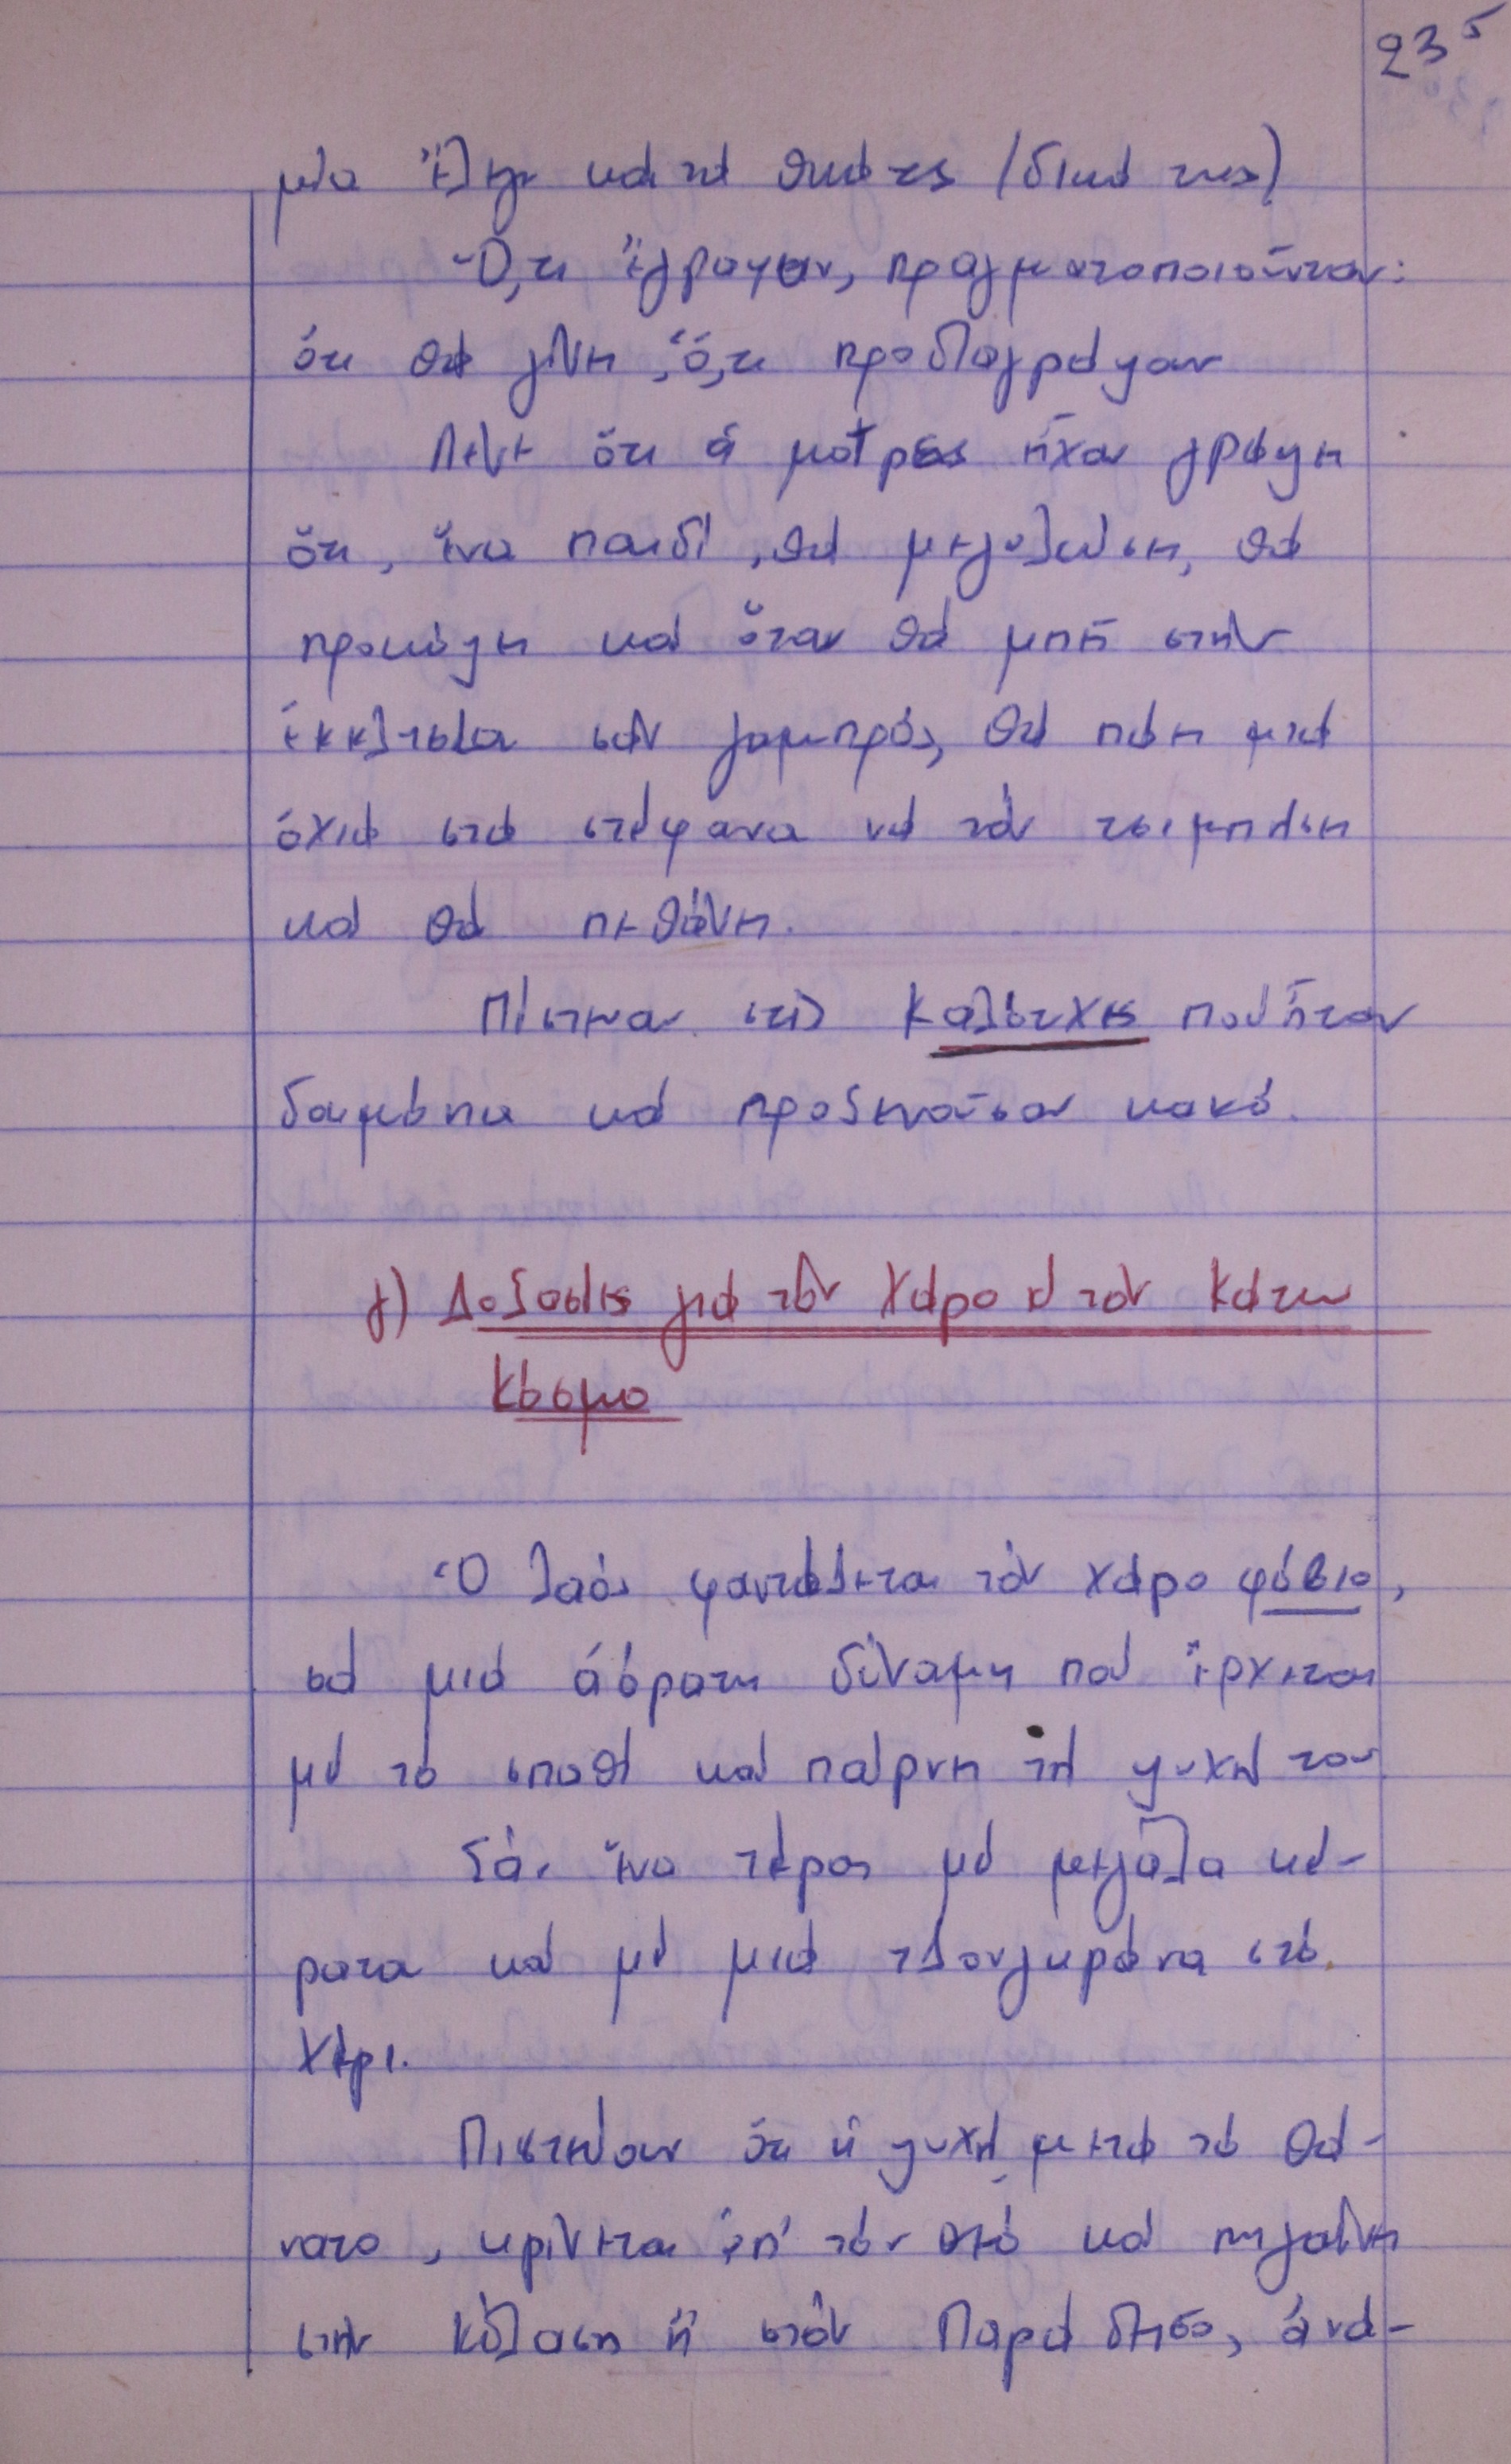 235
μία ἔλεγε καὶ τὰ θικά της (δικά της)
Ὅ,τι ἔγραφαν, πραγματοποιοῦνταν:
ὅτι θὰ γίνη, ὅ,τι προδιαγράψαν
Λένε ὅτι οἱ μοῖρες εἶχαν γράψει
ὅτι, ἕνα παιδί, θὰ μεγαλώσει, θὰ
προκόψει καὶ ὅταν θὰ μπῆ στὴν
ἐκκλησία σὰν γαμπρός, θὰ πάει μιὰ
ὀχιὰ στὰ στέφανα νὰ τὸν τσιμπήσει
καὶ θὰ πεθάνει.
Πίστευαν στὶς Καλότυχες ποὺ ἦταν
δαιμόνια καὶ προξενοῦσαν κακό.
γ) Δοξασίες γιὰ τὸν Χάρο κ' τὸν Κάτω
Κόσμο
Ὁ λαὸς φαντάζεται τὸν χάρο φόβιο,
σὰ μιὰ ἀόρατη δύναμη ποὺ ἔρχεται
μὲ τὸ σπαθὶ καὶ παίρνει τὴ ψυχή του
Σὰν ἕνα τέρας μὲ μεγάλα κέ-
ρατα καὶ μὲ μιὰ τσουγκράνα στὸ
χέρι.
Πιστεύουν ὅτι ἡ ψυχὴ μετὰ τὸ θά-
νατο, κρίνεται ἀπ' τὸν θεὸ καὶ πηγαίνει
στὴν κόλαση ἢ στὸν Παράδεισο, ἀνά-